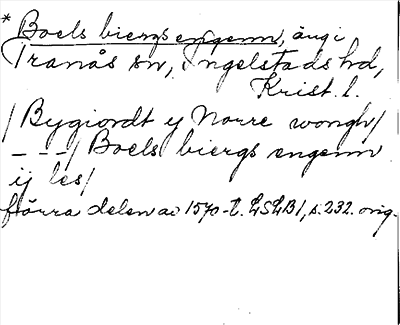 * Boels biergs engenn, äng i
Tranås sn, Ingelstads hd,
Krist. l.
/Bygiordt ij Norre wongh/
---/ Boels biergs engenn
ij les/
förra delen av 1570-t. LSLB1, s. 232. orig.